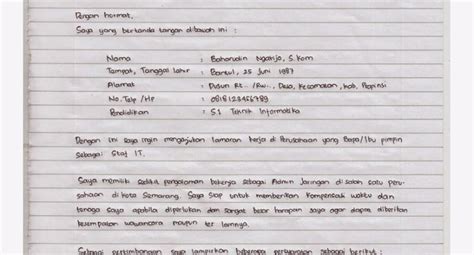 Dengan hormat,
Saya yang bertanda tangan dibawah ini :
Nama : Baharudin Nganjo, S.Kom
Tempat, Tanggal lahir : Bantul, 25 Juni 1987
Alamat : Dusun Rt.. /Rw.., Desa, Kecamatan, Kab, Propinsi
No. Telp /Hp : 0818123456789
Pendidikan : S1 Teknik Informatika
Dengan ini saya ingin mengajukan lamaran kerja di Perusahaan yang Bapa/Ibu pimpin
sebagai Staf IT.
Saya memiliki sedikit pengalaman bekerja sebagai Admin Jaringan di salah satu peru-
sahaan di kota Semarang. Saya siap untuk memberikan kompensasi waktu dan
tenaga saya apabila diperlukan dan sangat besar harapan saya agar dapat diberikan
kesempatan wawancara maupun tes lainnya.
Sebagai pertimbangan saya lampirkan beberapa persyaratan sebagai berikut :